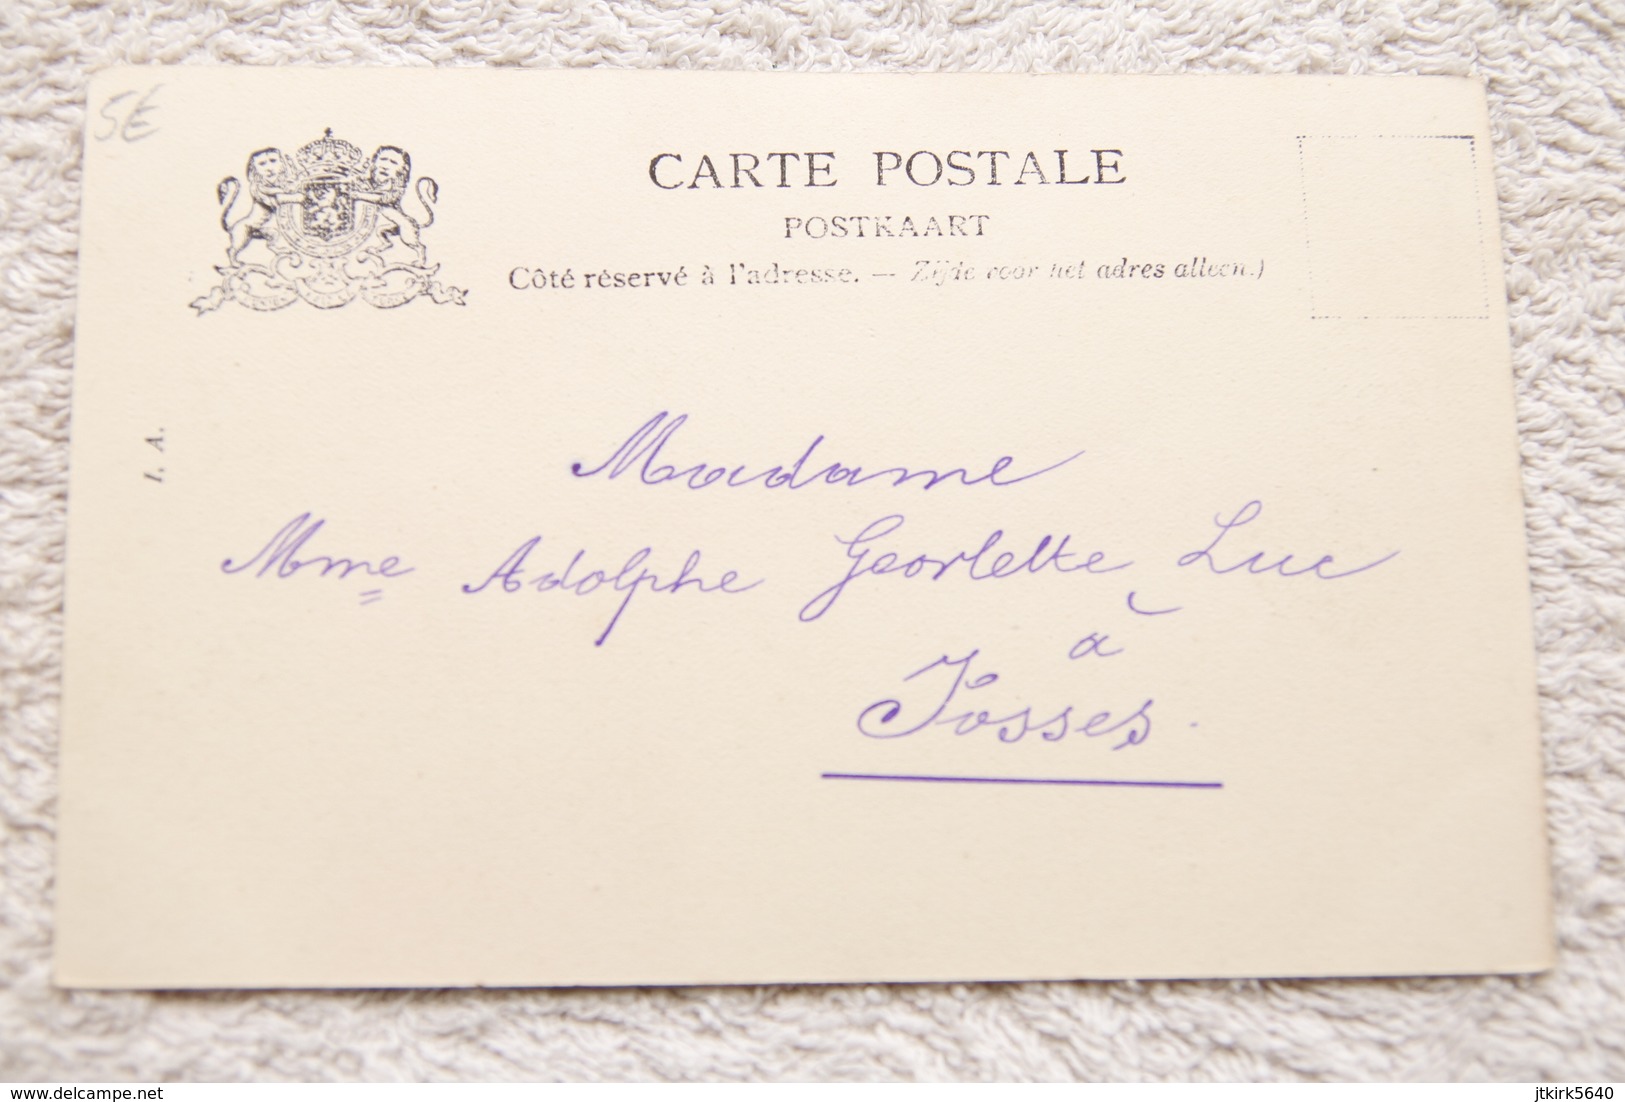 5€
CARTE POSTALE
POSTKAART
Côté réservé à l'adresse. — Zijde voor het adres alleen.)
I. A.
Madame
Mme Adolphe Georlette Luc
à
Fosses.
www.delcampe.net
jtkirk5640